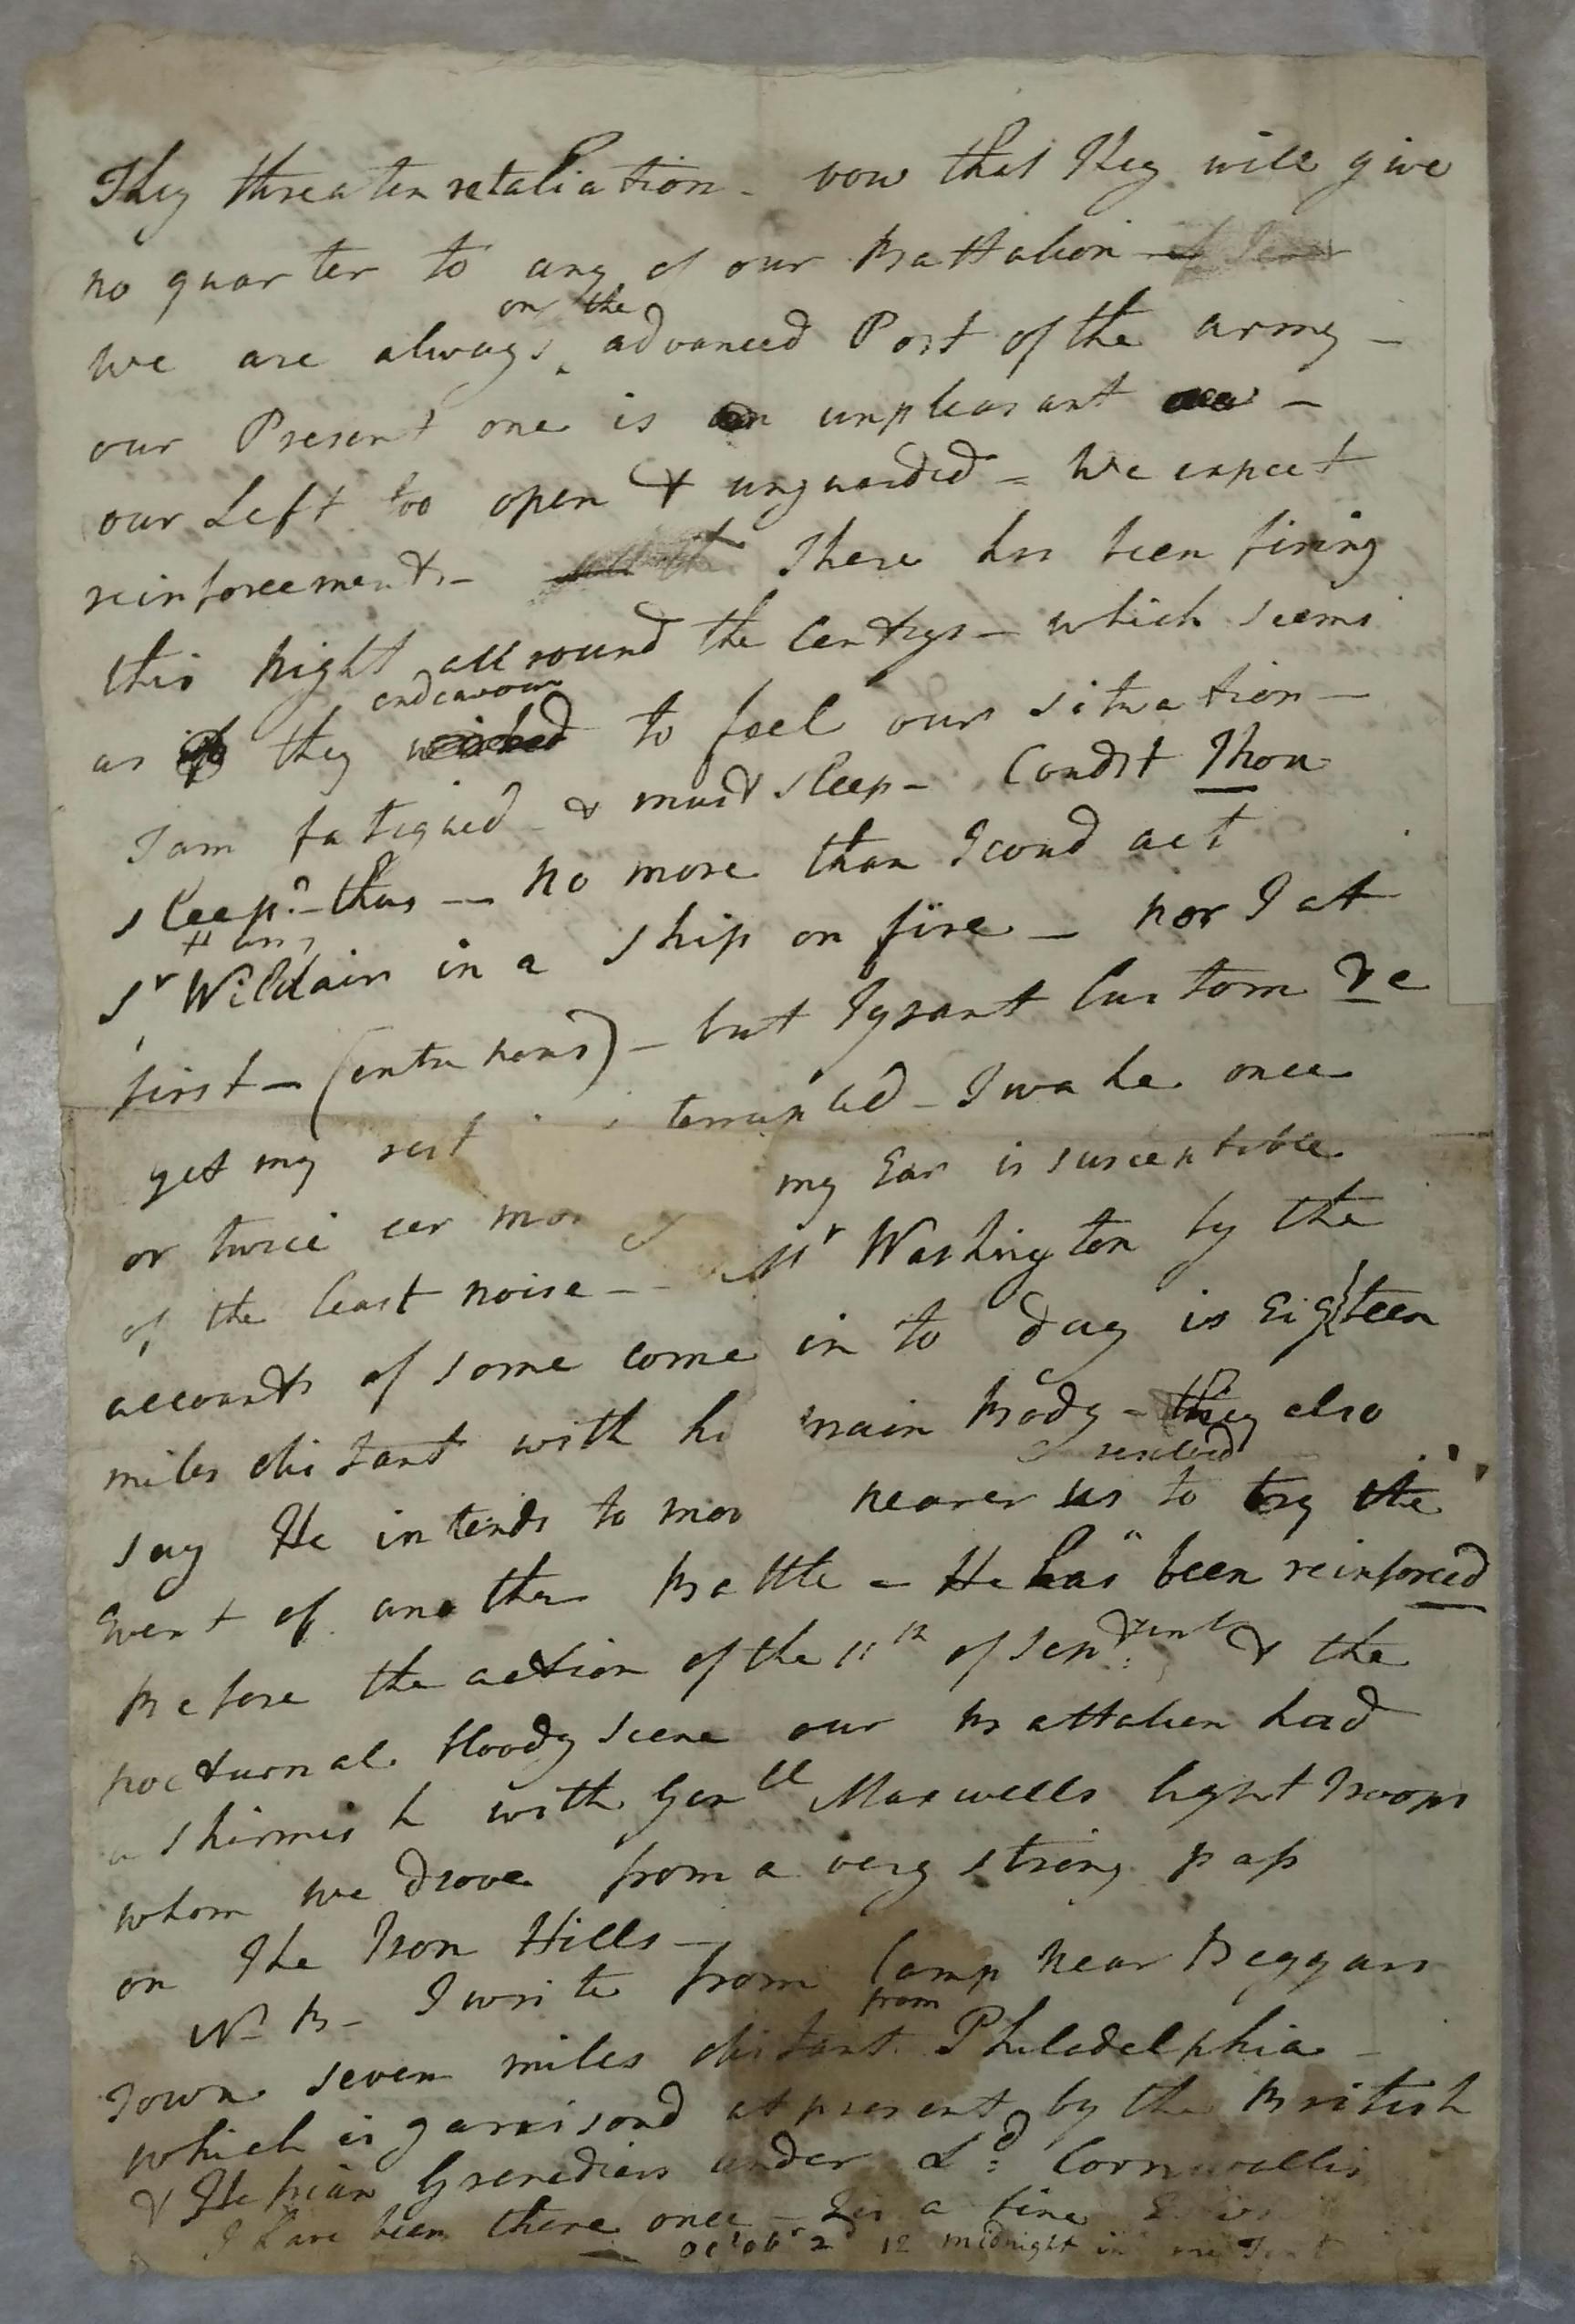 They threaten retaliation - vow that they will give
no quarter to any of our Battalion
on the
we are always advanced Post of the army -
our Present one is an unpleasant -
our Left too open & unguarded - We expect
reinforcements - There has been firing
this night all round the Centrys - which seems
endeavour
as if they wished to feel our situation -
I am fatigued & must sleep - Coudst Thou
sleep? - thus - no more than I coud act
Harry
Sr Wildair in a ship on fire - nor I at
first - (entre nous) - but Tyrant Custom &c
yet my rest terrupted - I wake once
or twice my Ear is susceptible
of the least noise - - Mr Washington by the
accounts of some come in to day is Eighteen
miles distant with his main Body - they also
say He intends to nearer us to try the
resolved
Event of another Battle - He has been reinforced
Before the action of the 11th of Septr & the
nocturnal bloody scene our Battalion had
a skirmish with Genll Maxwells light Troops
whom we drove from a very strong pass
on The Iron Hills -
N. B - I write from Camp near Beggars
from
Town seven miles distant Philadelphia -
which is garrisond at present by the British
& Hessian Grenediers under Ld: Cornwallis
I have been there once - tis a fine
Octobr 2d 12 midnight in Tent